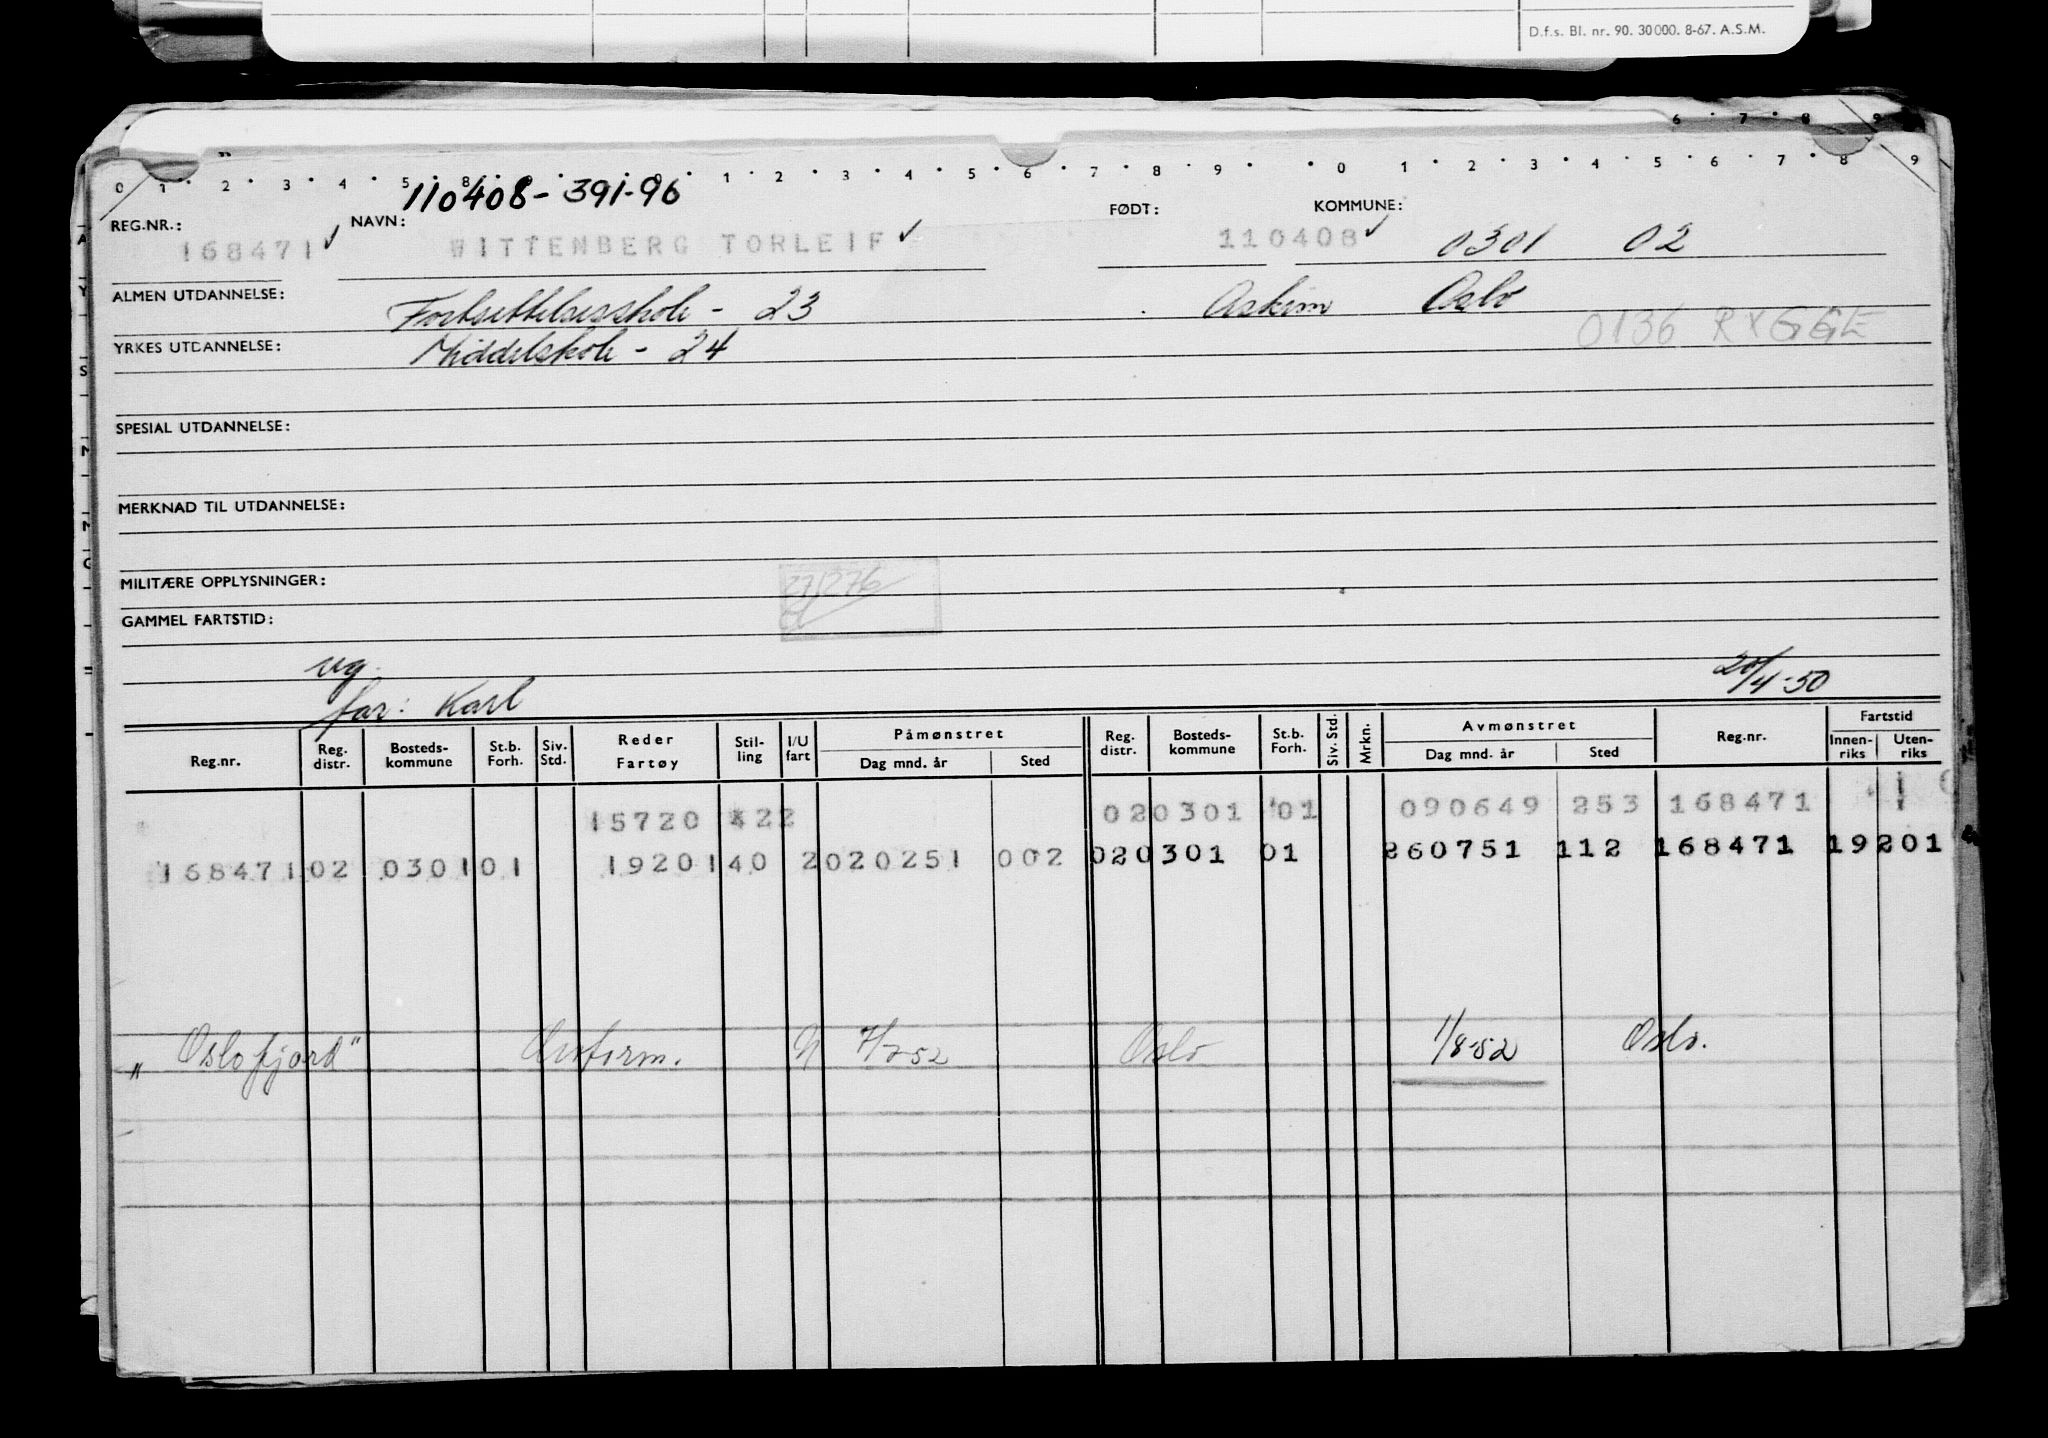 D.f.s. Bl. nr. 90. 30000. 8-67. A.S.M.
6 · 7 · 8 · 9
0 1 · 2 · 3 · 4 · 5 · 8 1 · 2 · 3 · 4 · 5 · 6 · 7 · 8 · 9 · · 0 · 1 · 2 · 3 · 4 · 5 · 6 · 7 · 8 9
110408-391-96
REG.NR.: NAVN: FØDT: KOMMUNE:
168471 ✓ WITTENBERG TORLEIF ✓ 110408 ✓ 0301 02
ALMEN UTDANNELSE: Fortsettelsesskole - 23 Askim Oslo
0136 RYGGE
YRKES UTDANNELSE: Middelskole - 24
SPESIAL UTDANNELSE:
MERKNAD TIL UTDANNELSE:
MILITÆRE OPPLYSNINGER:
GAMMEL FARTSTID:
ug.
far: Karl
Reg.nr. Reg. distr. Bosteds-kommune St.b. Forh. Siv. Std. Reder Fartøy Stil-ling I/U fart Påmønstret Dag mnd. år Sted Reg. distr. Bosteds-kommune St.b. Forh. Siv. Std. Mrkn. Avmønstret Dag mnd. år Sted Reg.nr. Fartstid Innen-riks Uten-riks
15720 422 020301 01 090649 253 168471
168471 02 0301 01 19201 40 2 020251 002 020301 01 260751 112 168471 19201
"Oslofjord" U Oslo 1/8-52 Oslo.